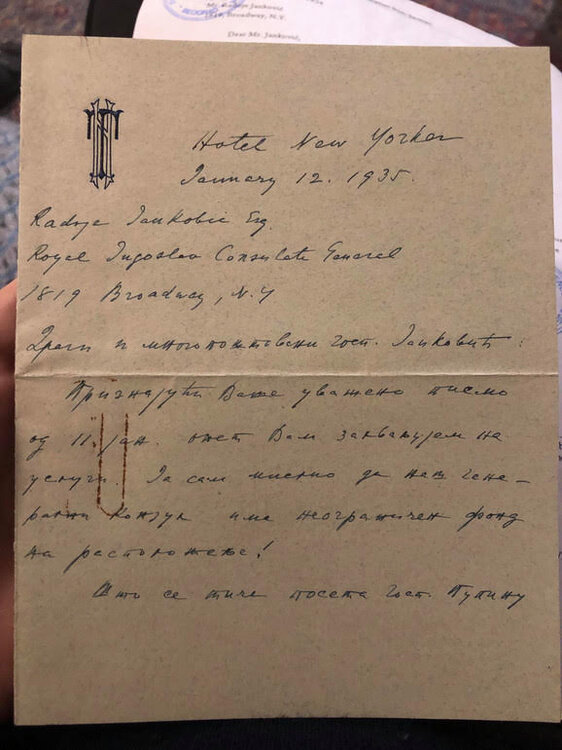 Mr. Radoje Janković
1819, Broadway, N.Y.
Dear Mr. Janković,
Hotel New Yorker
January 12. 1935.
Radoje Jankovic Esq.
Royal Jugoslav Consulate General
1819 Broadway, N.Y
Драги и многопоштовани госп. Јанковић:
Признајући Ваше уважено писмо
од 11. јан. опет Вам захваљујем на
услуги. Ја сам мислио да наш гене-
рални Конзул има неограничен фонд
на расположење!
Што се тиче посета госп. Пупину